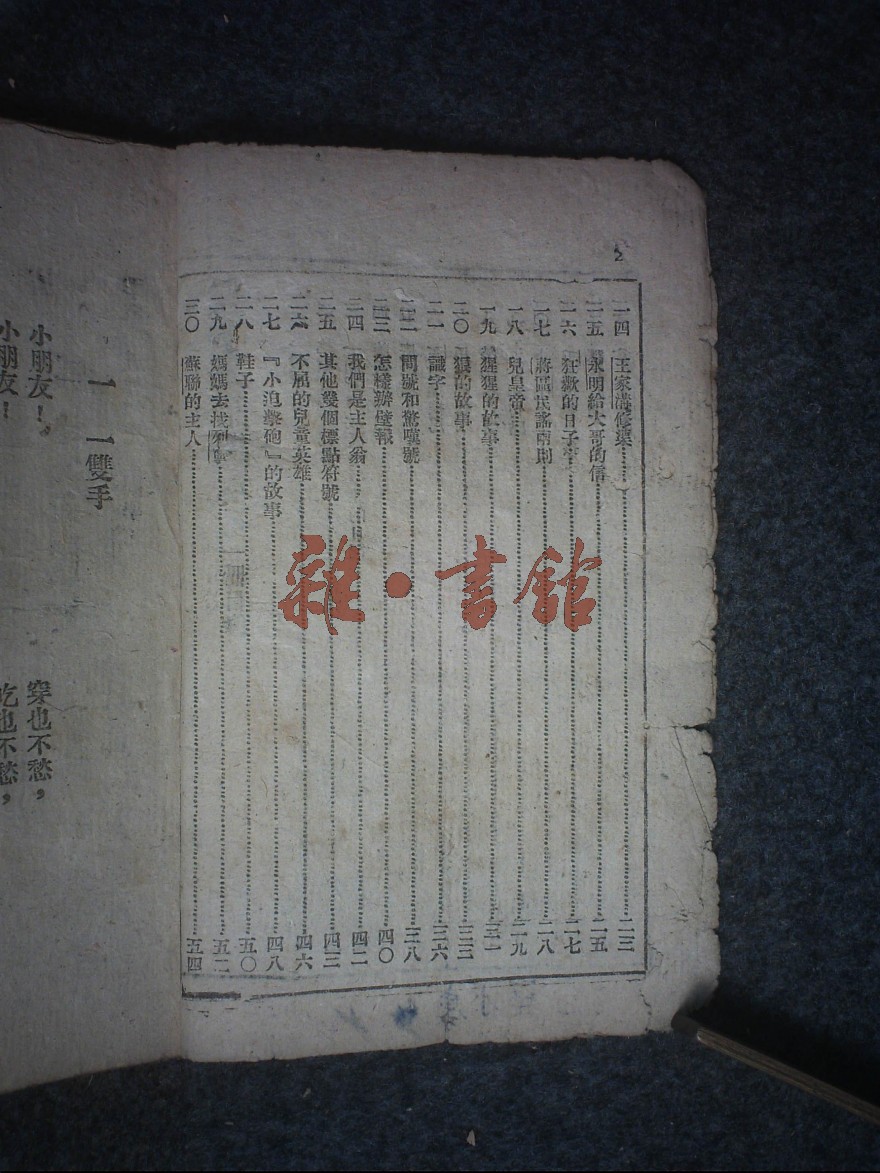 2
一四 王家溝修渠 二三
一五 永明給大哥的信 二五
一六 狂歡的日子 二七
一七 蔣區民謠兩則 二八
一八 兒皇帝 二九
一九 猩猩的故事 三一
二〇 狼的故事 三三
二一 識字 三六
二二 問號和驚嘆號 三八
二三 怎樣辦壁報 四〇
二四 我們是主人翁 四二
二五 其他幾個標點符號 四三
二六 不屈的兒童英雄 四六
二七 『小追擊砲』的故事 四八
二八 鞋子 五〇
二九 媽媽去找列寧 五二
三〇 蘇聯的主人 五四
一 一雙手
小朋友！ 穿也不愁，
小朋友！ 吃也不愁，
雜·書館